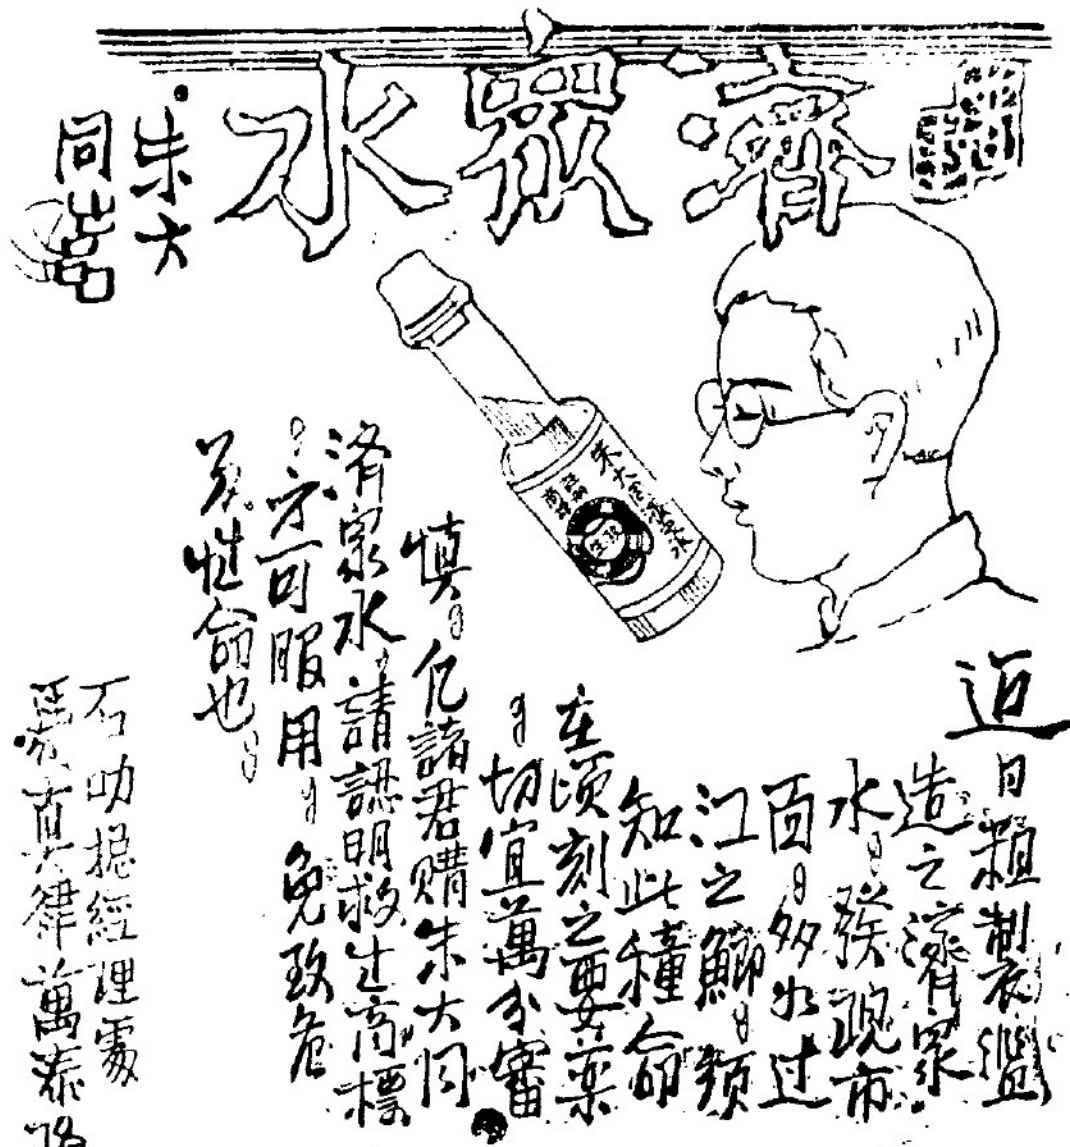 濟眾水
朱大
同
朱大同濟眾水
近日粗製濫
造之濟眾
水。發現市
面。多如过
江之鯽。須
知此種命
在頃刻之要藥
。切宜萬分審
慎。凡諸君購朱大同
濟眾水。請認明救生商標
。方可服用。免致危
及性命也。
石叻總經理處
律萬泰